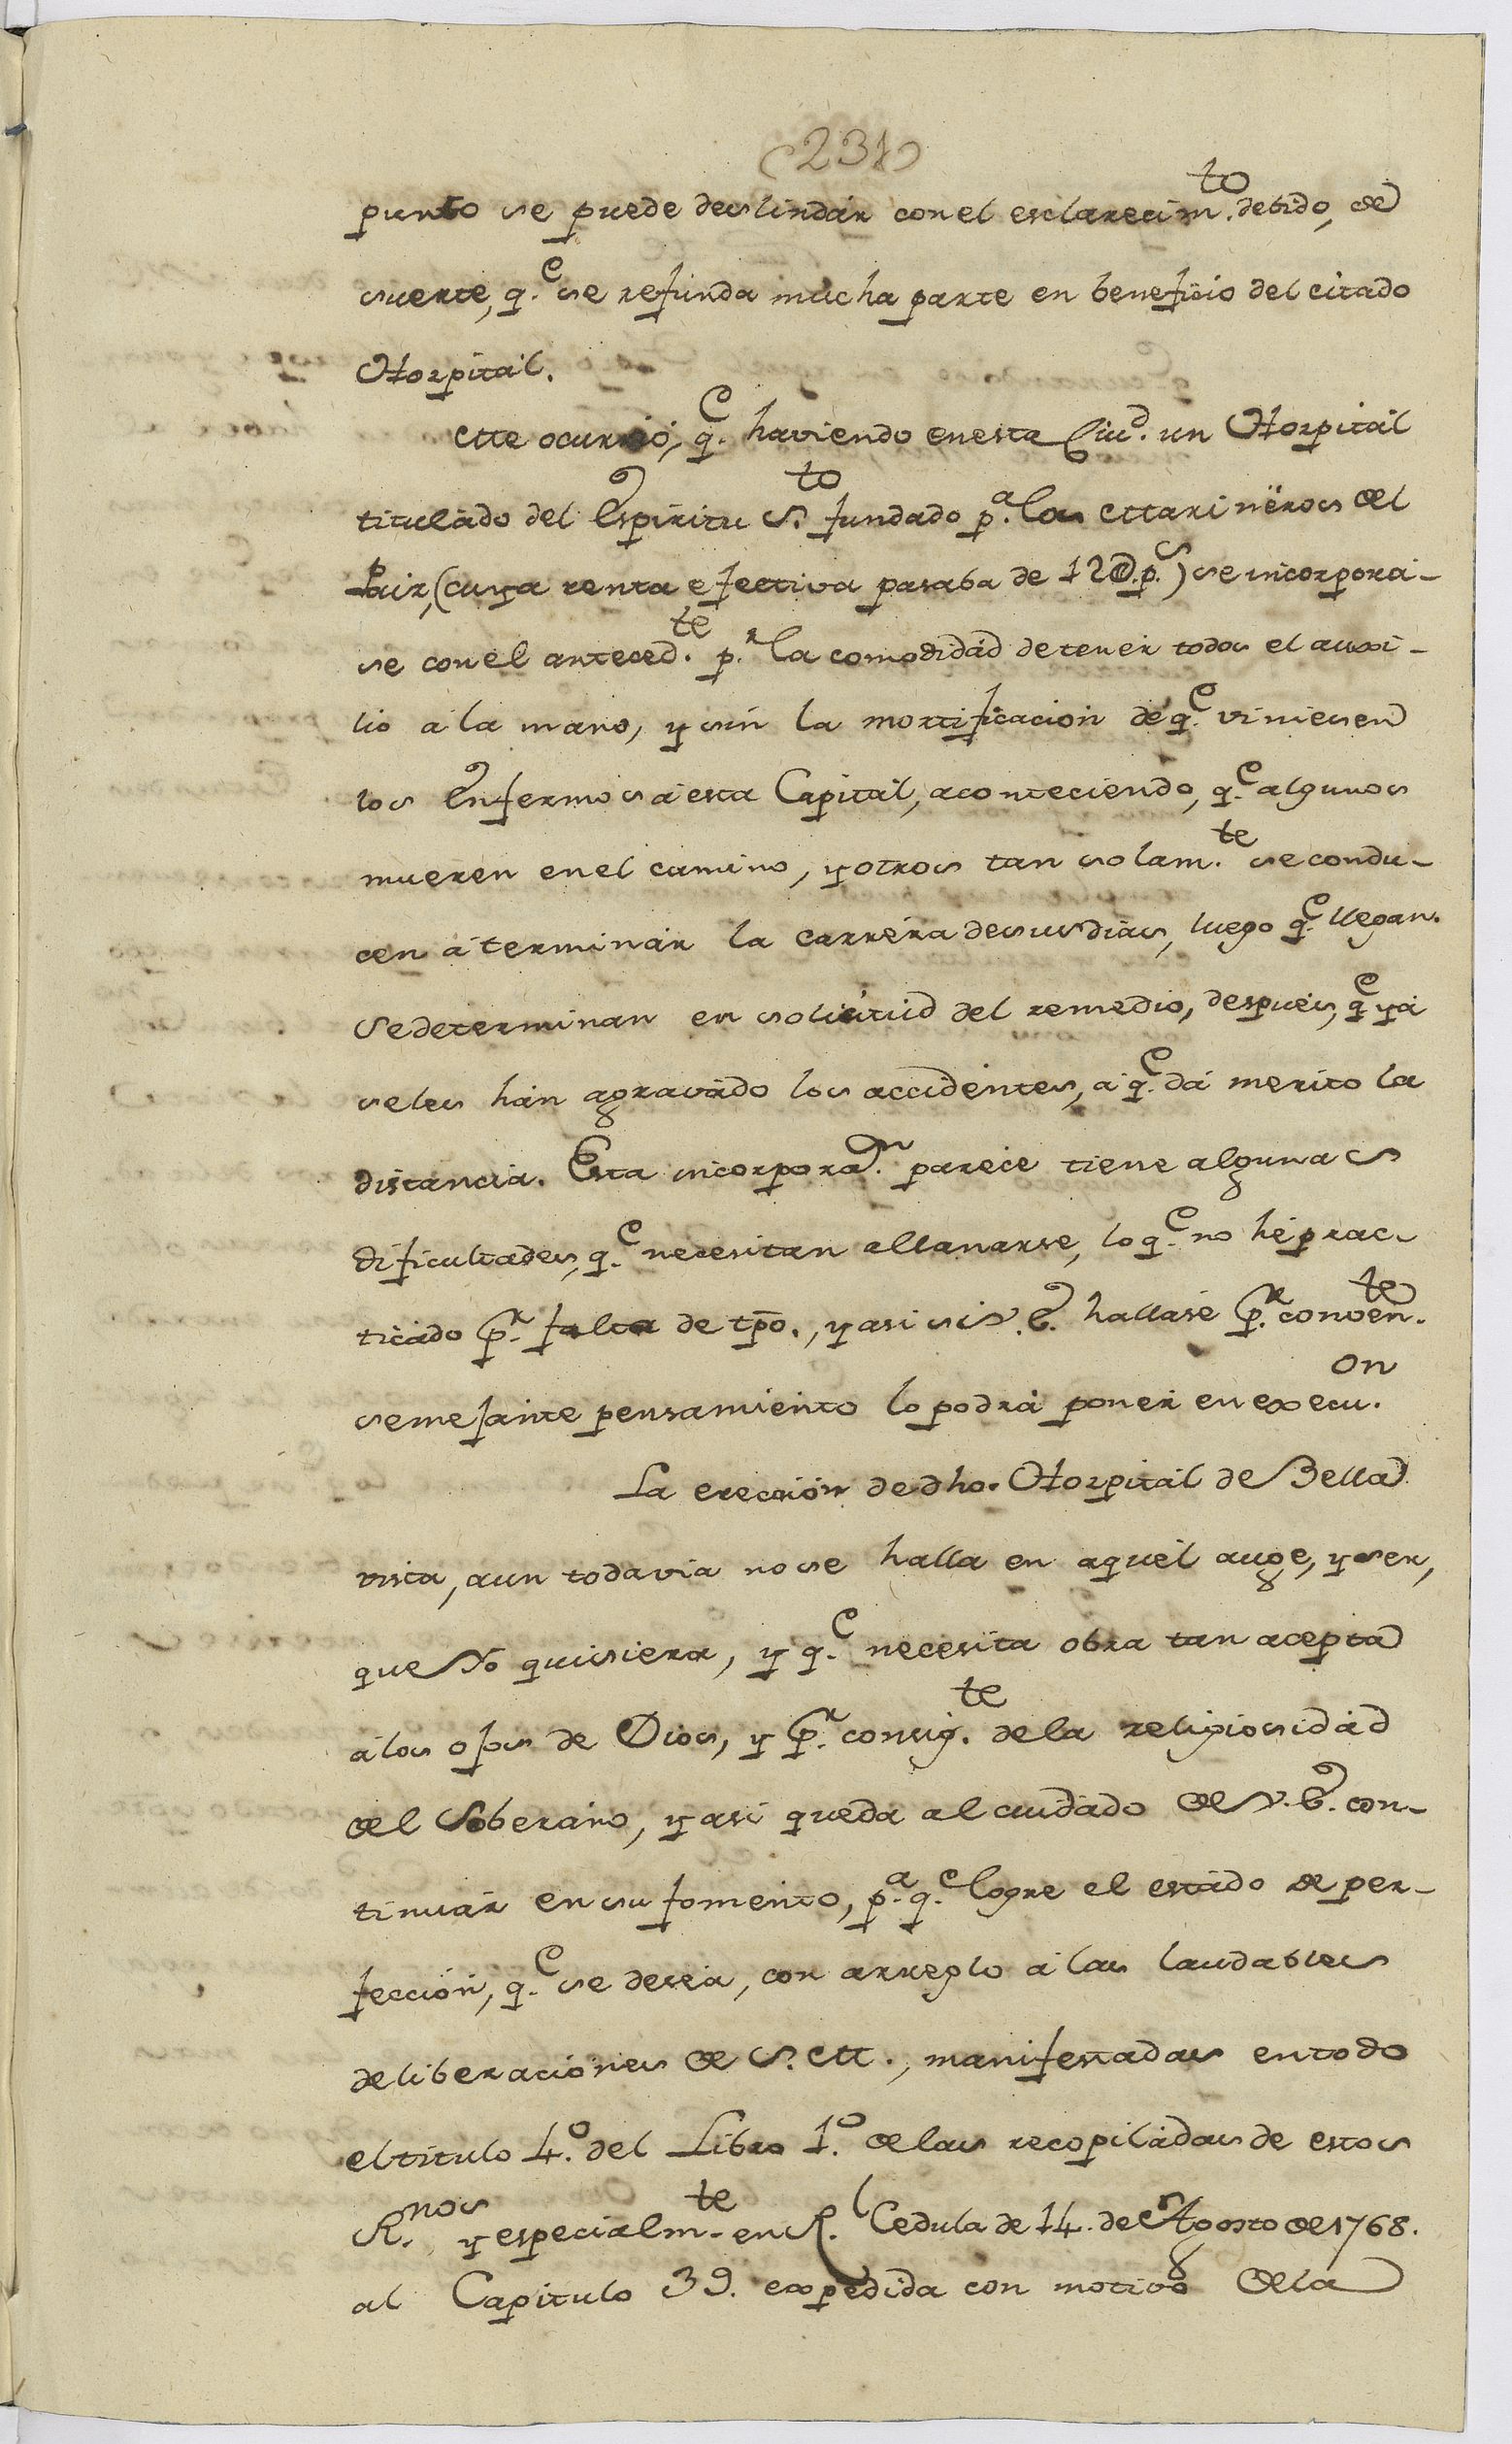 (231)
punto se puede deslindár con el esclarecim.to debido, de
suerte, q.e se refunda mucha parte en beneficio del citado
Hospital.
Me ocurrió, q.e haviendo en esta Ciu.d un Hospital
titulado del Espiritu S.to fundado p.a los Marineros del
Pais, (cuya renta efectiva pasaba de 12@.p.s) se incorpora-
se con el anteced.te p.r la comodidad de tener todos el auxi-
lio á la mano, y sin la mortificacion de q.e viniesen
los Enfermos á esta Capital, aconteciendo, q.e algunos
mueren en el camino, y otros tan solam.te se condu-
cen á terminár la carrera de sus dias, luego q.e llegan.
Se determinan en solicitúd del remedio, despues, q.e yá
se les hán agravado los accidentes, á q.e dá merito la
distancia. Esta incorpora.n parece tiene algunas
dificultades, q.e necesitan allanarse, lo q.e no hé prac-
ticado p.r falta de tpo., y asi si V.E. hallase p.r conven.te
semejante pensamiento lo podrá poner en execu.on
La erección de dho. Hospital de Bella
vista, aun todavia no se halla en aquél auge, y ser,
que Yo quisiera, y q.e necesita obra tan acepta
á los ojos de Dios, y p.r consig.te de la religiosidád
del Soberano, y asi queda al cuidado de V.E. con-
tinuár en su fomento, p.a q.e logre el estado de per-
fección, q.e se desea, con arreglo á las laudables
deliberaciones de S.M., manifestadas en todo
el titulo 4.o del Libro 1.o de las recopiladas de estos
R.nos y especialm.te en R.l Cedula de 14. de Agosto de 1768.
al Capitulo 39. expedida con motivo de la